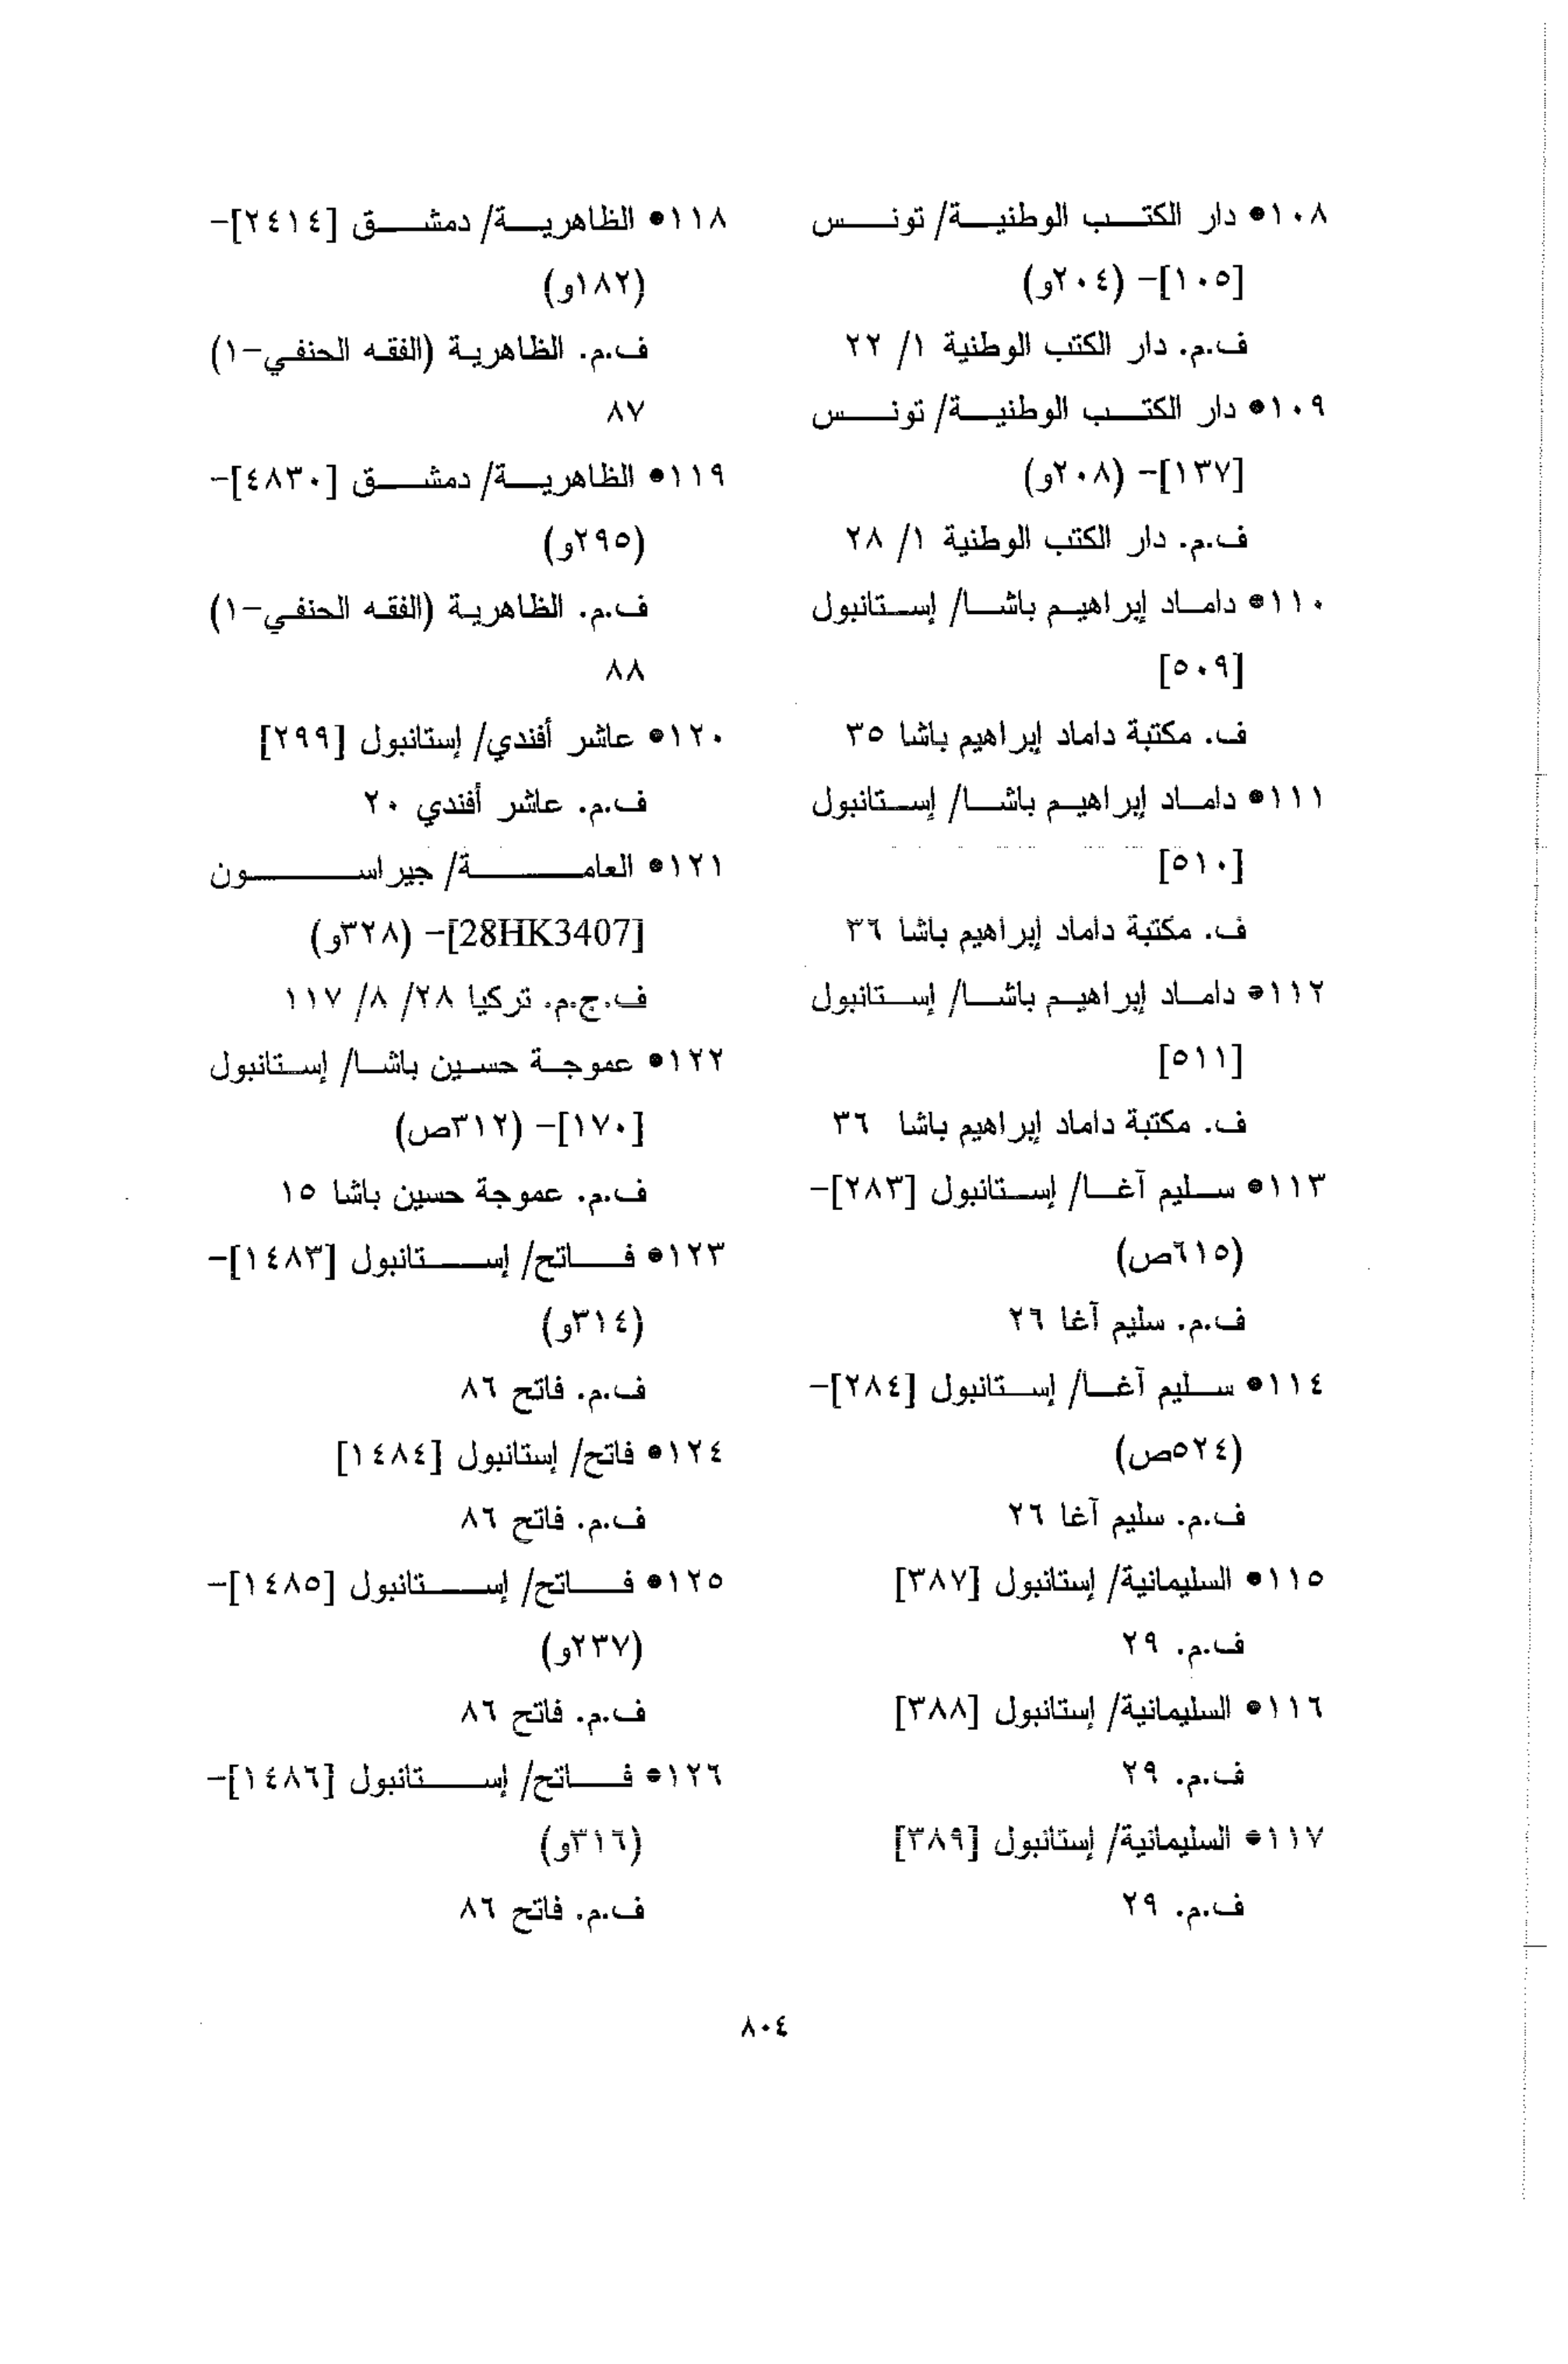 ١٠٨• دار الكتب الوطنية/ تونس
[١٠٥]- (٢٠٤و)
ف.م. دار الكتب الوطنية ١/ ٢٢
١٠٩• دار الكتب الوطنية/ تونس
[١٣٧]- (٢٠٨و)
ف.م. دار الكتب الوطنية ١/ ٢٨
١١٠• داماد إبراهيم باشا/ إستانبول
[٥٠٩]
ف. مكتبة داماد إبراهيم باشا ٣٥
١١١• داماد إبراهيم باشا/ إستانبول
[٥١٠]
ف. مكتبة داماد إبراهيم باشا ٣٦
١١٢• داماد إبراهيم باشا/ إستانبول
[٥١١]
ف. مكتبة داماد إبراهيم باشا ٣٦
١١٣• سليم آغا/ إستانبول [٢٨٣]-
(٦١٥ص)
ف.م. سليم آغا ٢٦
١١٤• سليم آغا/ إستانبول [٢٨٤]-
(٥٢٤ص)
ف.م. سليم آغا ٢٦
١١٥• السليمانية/ إستانبول [٣٨٧]
ف.م. ٢٩
١١٦• السليمانية/ إستانبول [٣٨٨]
ف.م. ٢٩
١١٧• السليمانية/ إستانبول [٣٨٩]
ف.م. ٢٩
١١٨• الظاهرية/ دمشق [٢٤١٤]-
(١٨٢و)
ف.م. الظاهرية (الفقه الحنفي-١)
٨٧
١١٩• الظاهرية/ دمشق [٤٨٣٠]-
(٢٩٥و)
ف.م. الظاهرية (الفقه الحنفي-١)
٨٨
١٢٠• عاشر أفندي/ إستانبول [٢٩٩]
ف.م. عاشر أفندي ٢٠
١٢١• العامة/ جيراسون
[28HK3407]- (٣٢٨و)
ف.ج.م. تركيا ٢٨/ ٨/ ١١٧
١٢٢• عموجة حسين باشا/ إستانبول
[١٧٠]- (٣١٢ص)
ف.م. عموجة حسين باشا ١٥
١٢٣• فاتح/ إستانبول [١٤٨٣]-
(٣١٤و)
ف.م. فاتح ٨٦
١٢٤• فاتح/ إستانبول [١٤٨٤]
ف.م. فاتح ٨٦
١٢٥• فاتح/ إستانبول [١٤٨٥]-
(٢٣٧و)
ف.م. فاتح ٨٦
١٢٦• فاتح/ إستانبول [١٤٨٦]-
(٣١٦و)
ف.م. فاتح ٨٦
٨٠٤